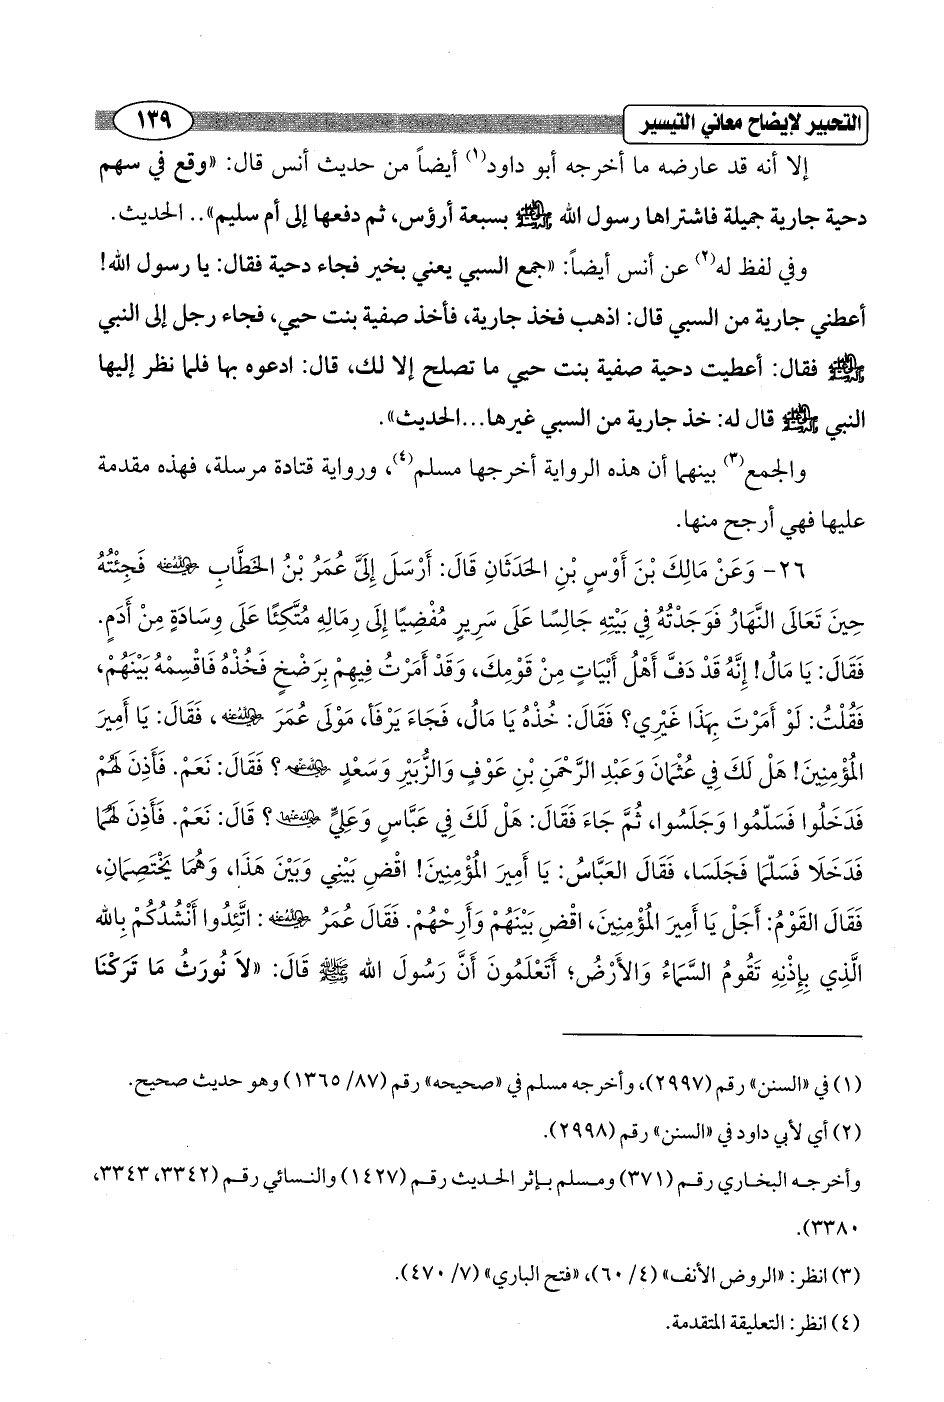 التحبير لإيضاح معاني التيسير ١٣٩
إلا أنه قد عارضه ما أخرجه أبو داود(١) أيضاً من حديث أنس قال: «وقع في سهم
دحية جارية جميلة فاشتراها رسول الله ﷺ بسبعة أرؤس، ثم دفعها إلى أم سليم».. الحديث.
وفي لفظ له(٢) عن أنس أيضاً: «جمع السبي يعني بخير فجاء دحية فقال: يا رسول الله!
أعطني جارية من السبي قال: اذهب فخذ جارية، فأخذ صفية بنت حيي، فجاء رجل إلى النبي
ﷺ فقال: أعطيت دحية صفية بنت حيي ما تصلح إلا لك، قال: ادعوه بها فلما نظر إليها
النبي ﷺ قال له: خذ جارية من السبي غيرها...الحديث».
والجمع(٣) بينهما أن هذه الرواية أخرجها مسلم(٤)، ورواية قتادة مرسلة، فهذه مقدمة
عليها فهي أرجح منها.
٢٦- وَعَنْ مَالِكَ بْنَ أَوْسِ بْنِ الحَدَثَانِ قَالَ: أَرْسَلَ إِلَيَّ عُمَرُ بْنُ الخَطَّابِ رضي الله عنه فَجِئْتُهُ
حِينَ تَعَالَى النَّهَارُ فَوَجَدْتُهُ فِي بَيْتِهِ جَالِسًا عَلَى سَرِيرٍ مُفْضِيًا إِلَى رِمَالِهِ مُتَّكِئًا عَلَى وِسَادَةٍ مِنْ أَدَمٍ.
فَقَالَ: يَا مَالُ! إِنَّهُ قَدْ دَفَّ أَهْلُ أَبْيَاتٍ مِنْ قَوْمِكَ، وَقَدْ أَمَرْتُ فِيهِمْ بِرَضْخٍ فَخُذْهُ فَاقْسِمْهُ بَيْنَهُمْ،
فَقُلْتُ: لَوْ أَمَرْتَ بِهَذَا غَيْرِي؟ فَقَالَ: خُذْهُ يَا مَالُ، فَجَاءَ يَرْفَأُ، مَوْلَى عُمَرَ رضي الله عنه، فَقَالَ: يَا أَمِيرَ
المُؤْمِنِينَ! هَلْ لَكَ فِي عُثْمَانَ وَعَبْدِ الرَّحْمَنِ بْنِ عَوْفٍ وَالزُّبَيْرِ وَسَعْدٍ رضي الله عنهم؟ فَقَالَ: نَعَمْ. فَأَذِنَ لَهُمْ
فَدَخَلُوا فَسَلَّمُوا وَجَلَسُوا، ثُمَّ جَاءَ فَقَالَ: هَلْ لَكَ فِي عَبَّاسٍ وَعَلِيٍّ رضي الله عنهما؟ قَالَ: نَعَمْ. فَأَذِنَ لَهُمَا
فَدَخَلَا فَسَلَّمَا فَجَلَسَا، فَقَالَ العَبَّاسُ: يَا أَمِيرَ المُؤْمِنِينَ! اقْضِ بَيْنِي وَبَيْنَ هَذَا، وَهُمَا يَخْتَصِمَانِ،
فَقَالَ القَوْمُ: أَجَلْ يَا أَمِيرَ المُؤْمِنِينَ، اقْضِ بَيْنَهُمْ وَأَرِحْهُمْ. فَقَالَ عُمَرُ رضي الله عنه: اتَّئِدُوا أَنْشُدُكُمْ بِالله
الَّذِي بِإِذْنِهِ تَقُومُ السَّمَاءُ وَالأَرْضُ؛ أَتَعْلَمُونَ أَنَّ رَسُولَ الله ﷺ قَالَ: «لاَ نُورَثُ مَا تَرَكْنَا
(١) في «السنن» رقم (٢٩٩٧)، وأخرجه مسلم في «صحيحه» رقم (٨٧/ ١٣٦٥) وهو حديث صحيح.
(٢) أي لأبي داود في «السنن» رقم (٢٩٩٨).
وأخرجه البخاري رقم (٣٧١) ومسلم بإثر الحديث رقم (١٤٢٧) والنسائي رقم (٣٣٤٢، ٣٣٤٣،
٣٣٨٠).
(٣) انظر: «الروض الأنف» (٤/ ٦٠)، «فتح الباري» (٧/ ٤٧٠).
(٤) انظر: التعليقة المتقدمة.